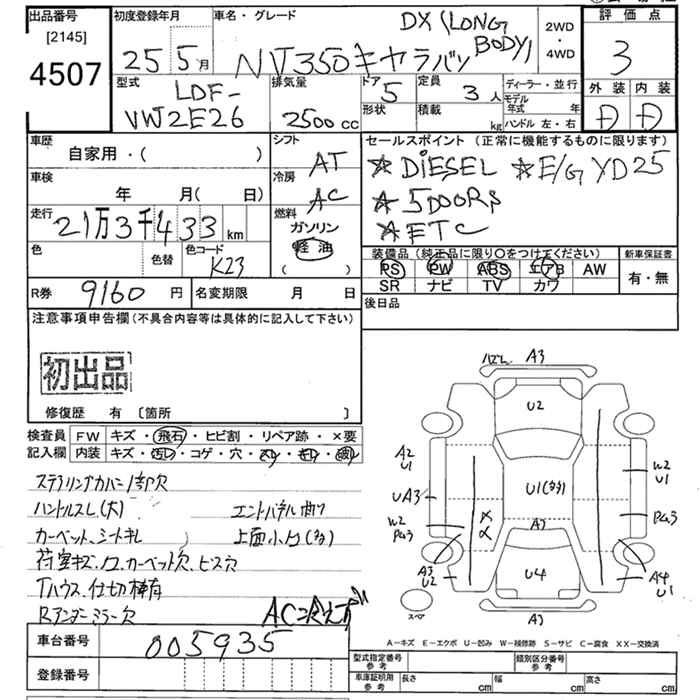 出品番号
[2145]
4507
初度登録年月
25 5月
車名・グレード
NV350キャラバン
DX(LONG
BODY)
2WD
・
4WD
評価点
3
外装 内装
型式
LDF-
VW2E26
排気量
2500cc
ドア
5
形状
定員
3人
積載
kg
ディーラー・並行
モデル
年式 年
ハンドル 左・右
車歴
自家用・( )
車検
年 月( 日)
走行
21万3千433km
色
色替
色コード
K23
シフト
AT
冷房
AC
燃料
ガソリン
軽油
( )
セールスポイント (正常に機能するものに限ります)
☆DIESEL ☆E/G YD25
☆5DOORS
☆ETC
装備品(純正品に限り○をつけてください)
PS PW ABS エアB AW
SR ナビ TV カワ
新車保証書
有・無
R券
9160円
名変期限 月 日
後日品
注意事項申告欄(不具合内容等は具体的に記入して下さい)
初出品
修復歴 有 〔箇所 〕
検査員
記入欄
FW キズ・飛石・ヒビ割・リペア跡・×要
内装 キズ・汚レ・コゲ・穴・スレ・キレ・破レ
ステアリングカバー1部欠
ハンドルスレ(大) エンドパネル曲り
カーベット、シートキレ 上面小凹(多)
荷室キズ、凹、カーベット欠、ビス穴
Tハウス、仕切棒有
Rアンダーミラー欠
AC冷えず
車台番号
005935
登録番号
A3
U2
A2
U1
UA3
W2
Pa3
A3
U2
U1(多)
A2
U4
A3
W2
U1
Pa3
A4
U1
スペア
A-キズ E-エクボ U-凹み W-補修跡 S-サビ C-腐食 XX-交換済
型式指定番号
参考
類別区分番号
参考
車庫証明用
参考
長さ cm
幅 cm
高さ cm